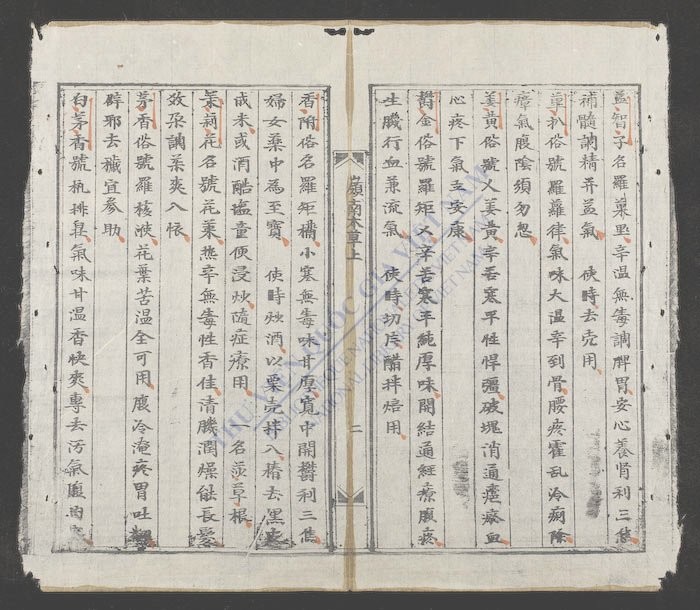 益智子名羅裹思辛温無毒調脾胃安心養肾利三焦
補髓調精并益氣 使時去壳用
草扒俗號羅羅律氣味大温辛到骨腰疼霍乱冷痢除
瘴氣腹陰須勿忽
姜黄俗號乂姜黄辛苦寒平性悍彊破塊消通瘧瘀血
心疼下氣五安康
欎金俗號羅矩乂辛苦寒平純厚味開結通經療腹疼
生肌行血兼流氣 使時切片醋拌焙用
嶺南本草上
二
香附俗名羅矩橎小寒無毒味甘厚寬中開欎利三焦
婦女藥中為至寶 使時炒酒以栗壳拌入樁去黑皮
成末或酒醋塩童便浸炒隨症療用 一名莎草根
氣莉花名號花葇热辛無毒性香佳清肌潤燥能長髪
效尕調茶爽入懷
茅香俗號羅核液花葉苦温全可用腹冷淹疼胃吐
辟邪去穢宜參助
白茅香號執排臭氣味甘温香快爽專去污氣腹内
THƯ VIỆN QUỐC GIA VIỆT NAM
BIBLIOTHEQUE NATIONALE DU VIETNAM
NATIONAL LIBRARY OF VIETNAM